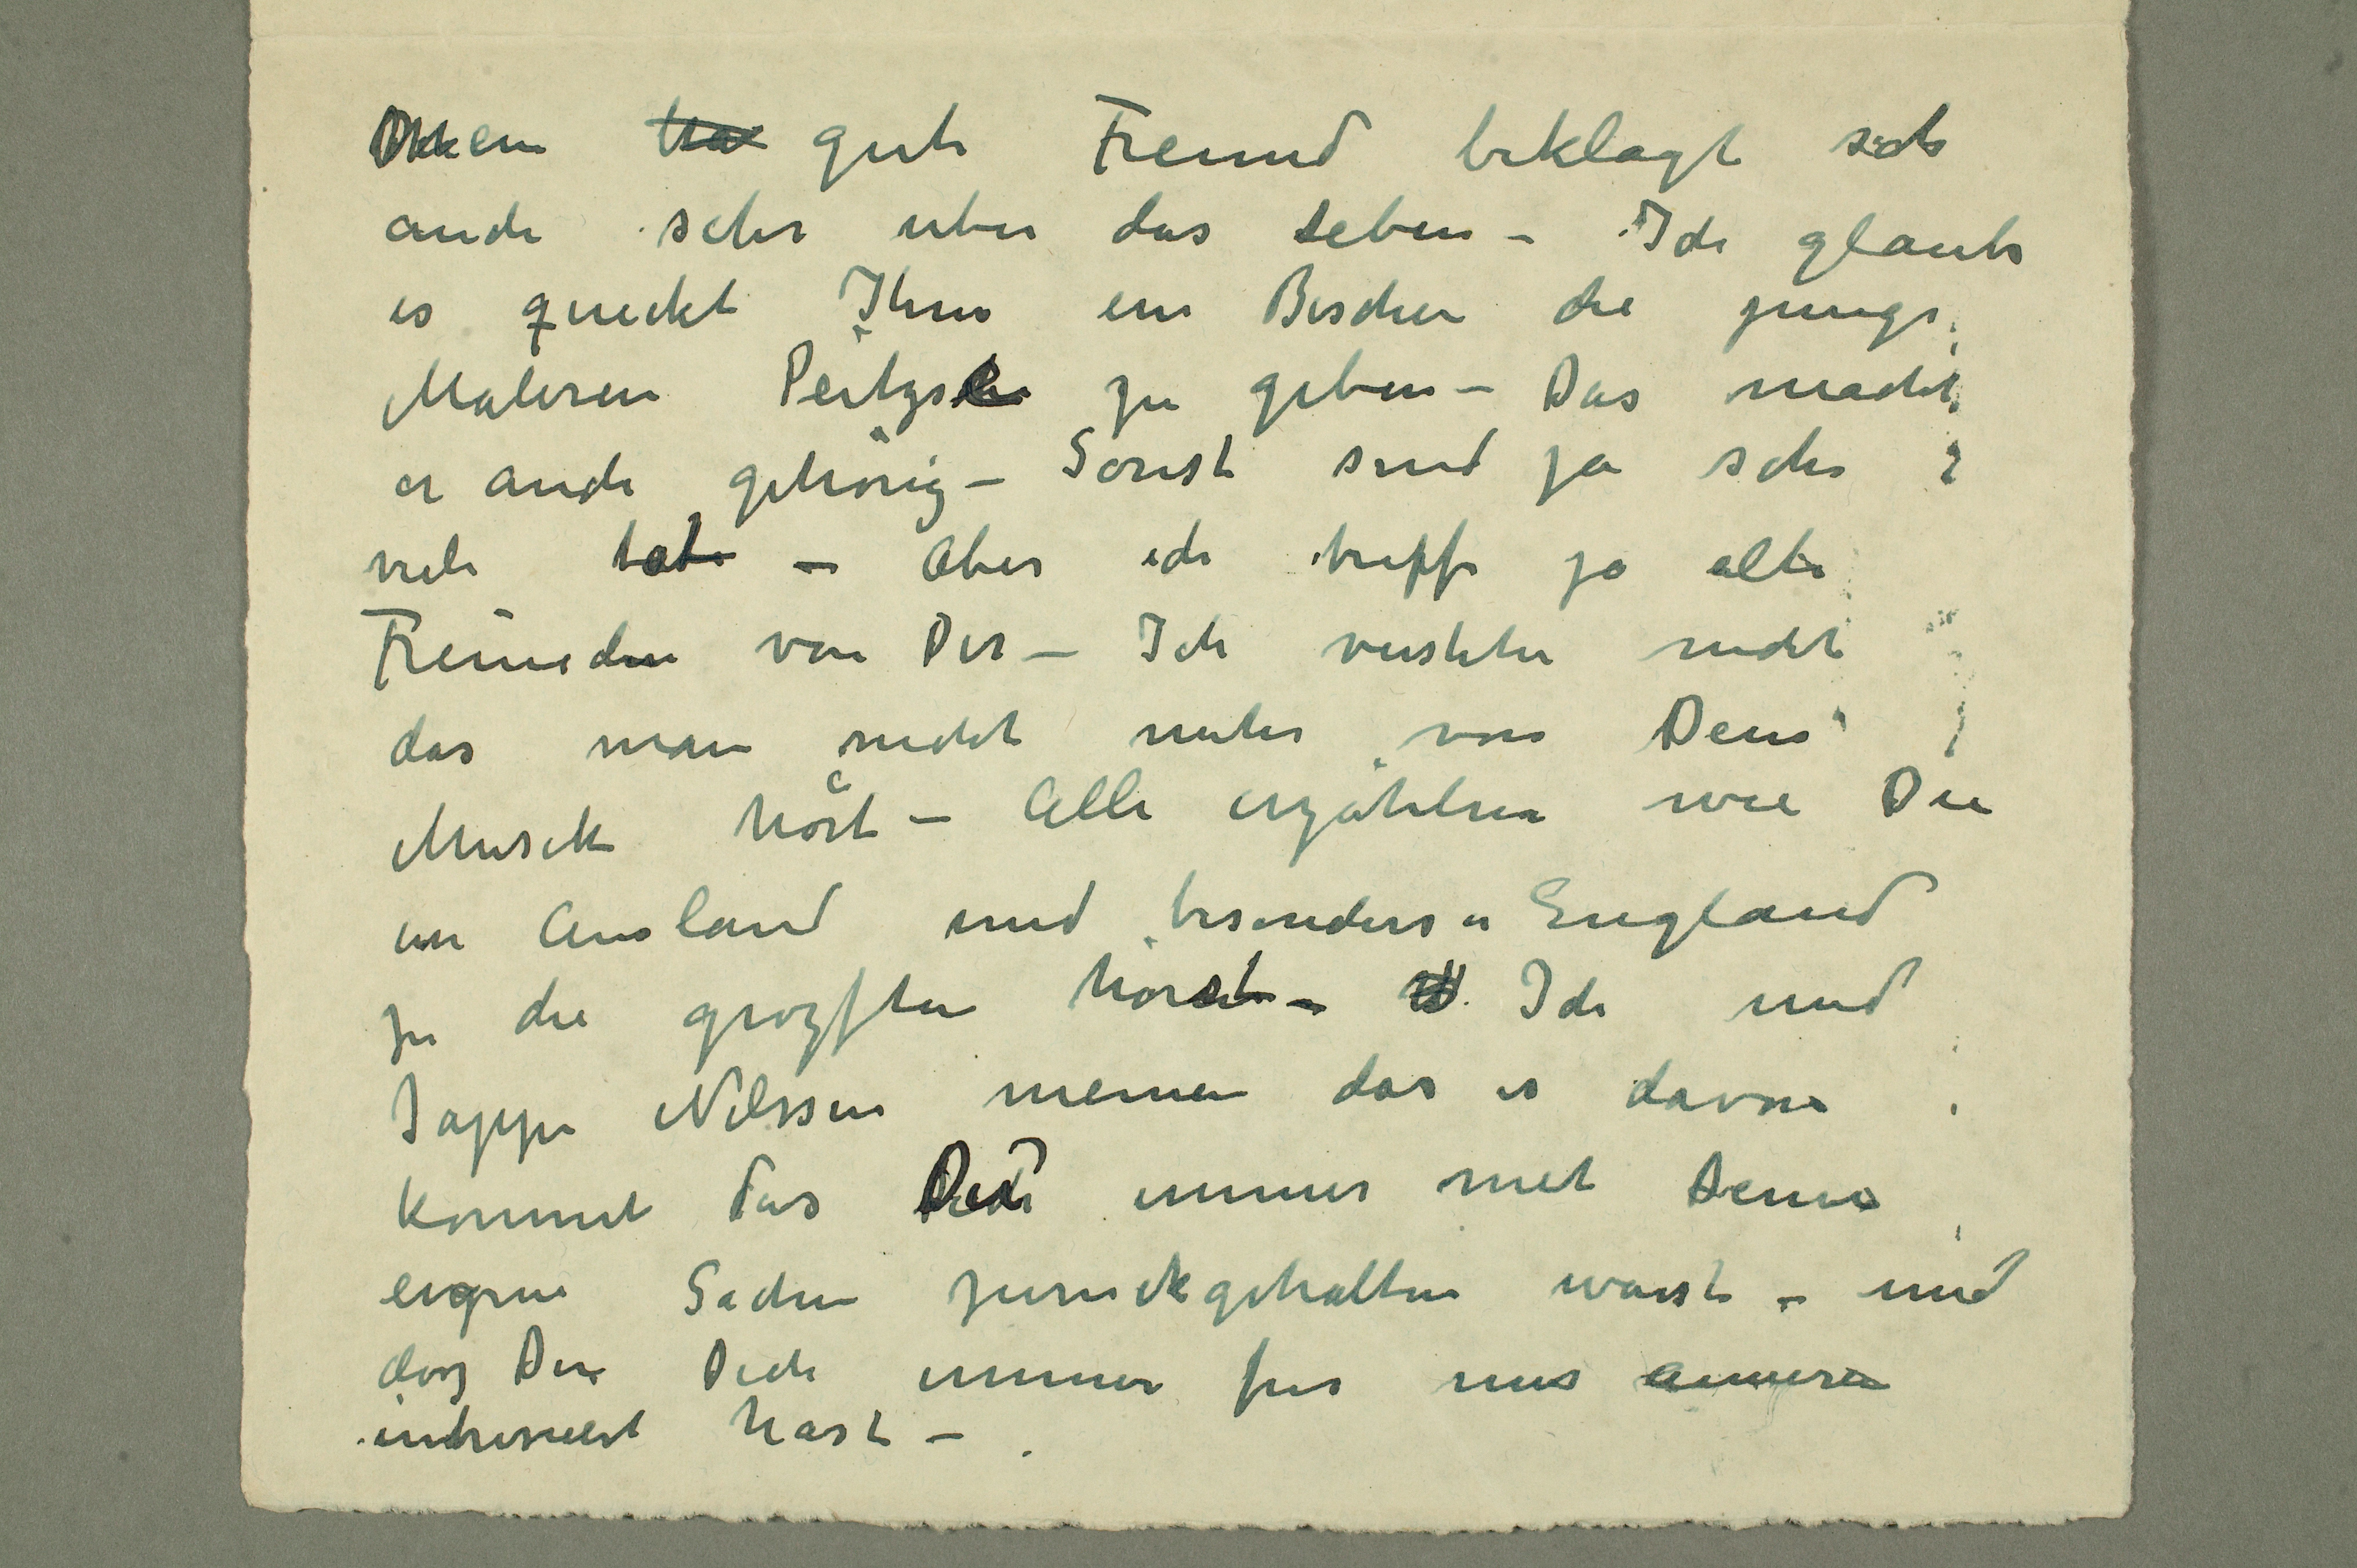 gute Freund beklagt sich
auch sehr über das Leben – Ich glaube
es quickt Ihm ein Bischen die junge
Maleren Peitzsche zu geben – Das macht
er auch gehörig – Sonst sind ja sehr
viele tote – Aber ich treffe ja alte
Freunden von Dir – Ich verstehe nicht
das man nicht mehr von Dein
Musik hört – Alle erzählen wie Du
im Ausland und besonders in England
zu die grozften hörst – Ich und
Jappe Nilssen meinen das es davon
kommt das Du immer mit Deine
eigene Sachen zurückgehalten warst – und
daz Du Dich immer für uns
interesiert hast –